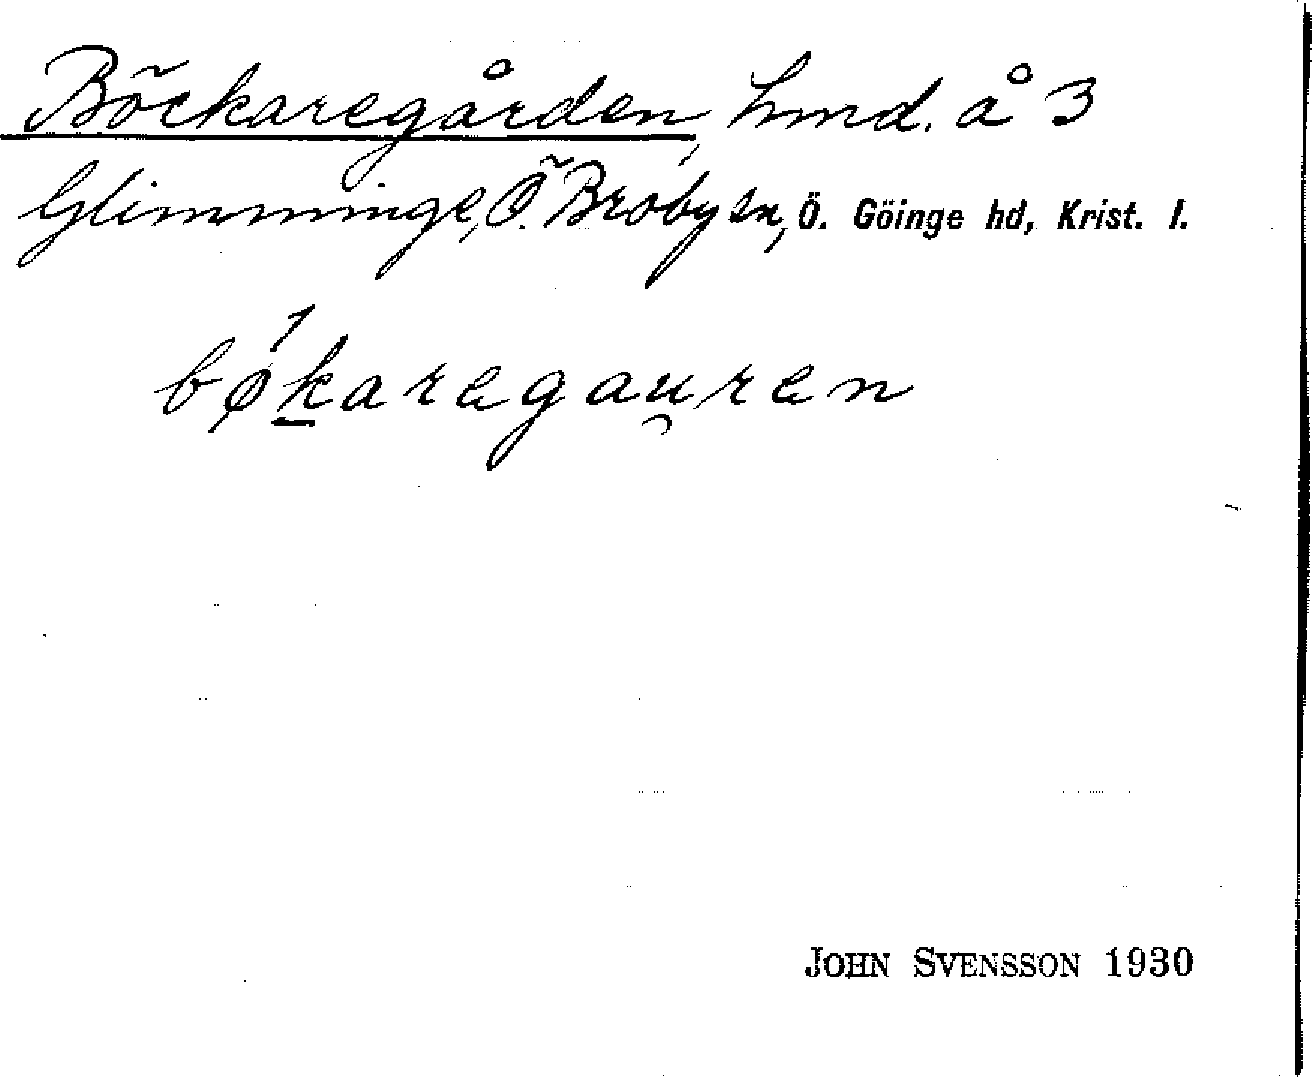 Böckaregården, hmd. å 3
Glimminge, Ö. Broby sn, Ö. Göinge hd, Krist. l.
bǿkaregau̯ren
JOHN SVENSSON 1930